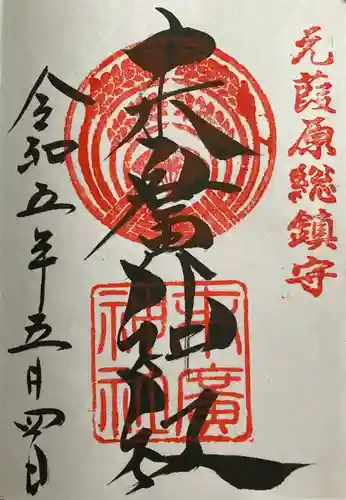 元葭原総鎮守
末廣神社
末廣
神社
令和五年五月四日